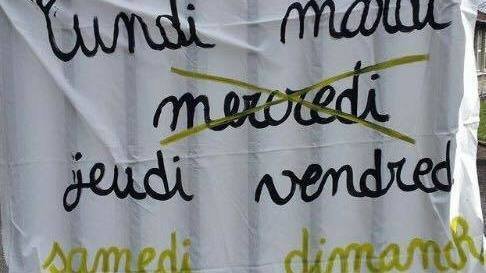 lundi mardi
mercredi
jeudi vendred
samedi dimanch